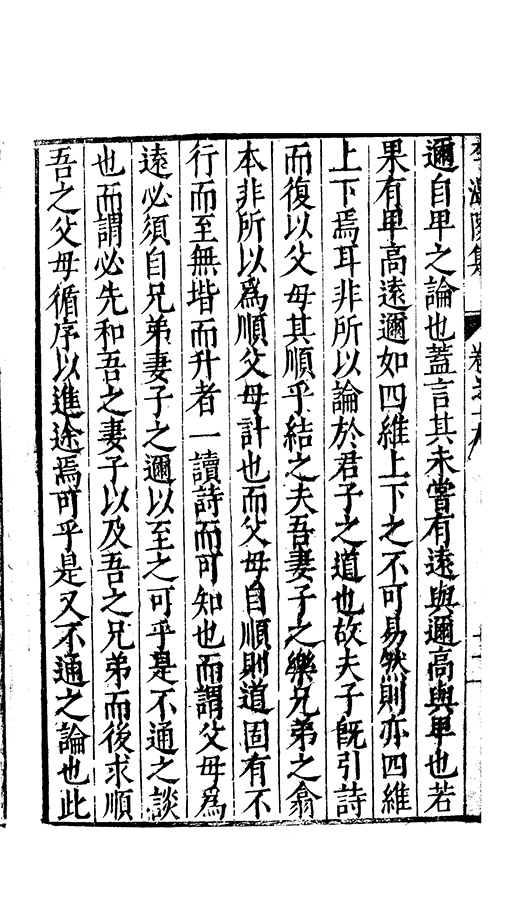 邇自卑之論也蓋言其未嘗有遠與邇高與卑也若
果有卑高遠邇如四維上下之不可易然則亦四維
上下焉耳非所以論於君子之道也故夫子既引詩
而復以父母其順乎結之夫吾妻子之樂兄弟之翕
本非所以爲順父母計也而父母自順則道固有不
行而至無堦而升者一讀詩而可知也而謂父母爲
遠必須自兄弟妻子之邇以至之可乎是不通之談
也而謂必先和吾之妻子以及吾之兄弟而後求順
吾之父母循序以進途焉可乎是又不通之論也此